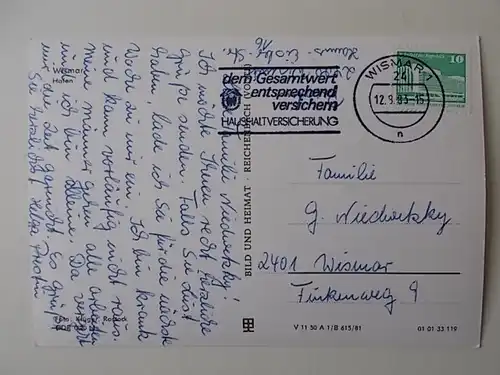 Wismar
Hafen
Familie Niedwetzky!
Ich möchte Ihnen recht herzliche
Grüße senden. Falls Sie Lust
haben, lade ich Sie für die nächste
Woche zu mir ein. Ich bin krank
und kann vorläufig nicht raus.
meine Männer gehen alle arbeiten
und ich bin alleine. Da
mir die Zeit Es grüßt
Sie herzlichst Helga
Foto: Rostock
BILD UND HEIMAT · REICHENBACH (VOGTL)
dem Gesamtwert
entsprechend
versichern
HAUSHALTVERSICHERUNG
WISMAR 1
24
12.9.83-15
n
10
Familie
G. Niedwetzky
2401 Wismar
Finkenweg 9
V 11 50 A 1/B 615/81
01 01 33 119